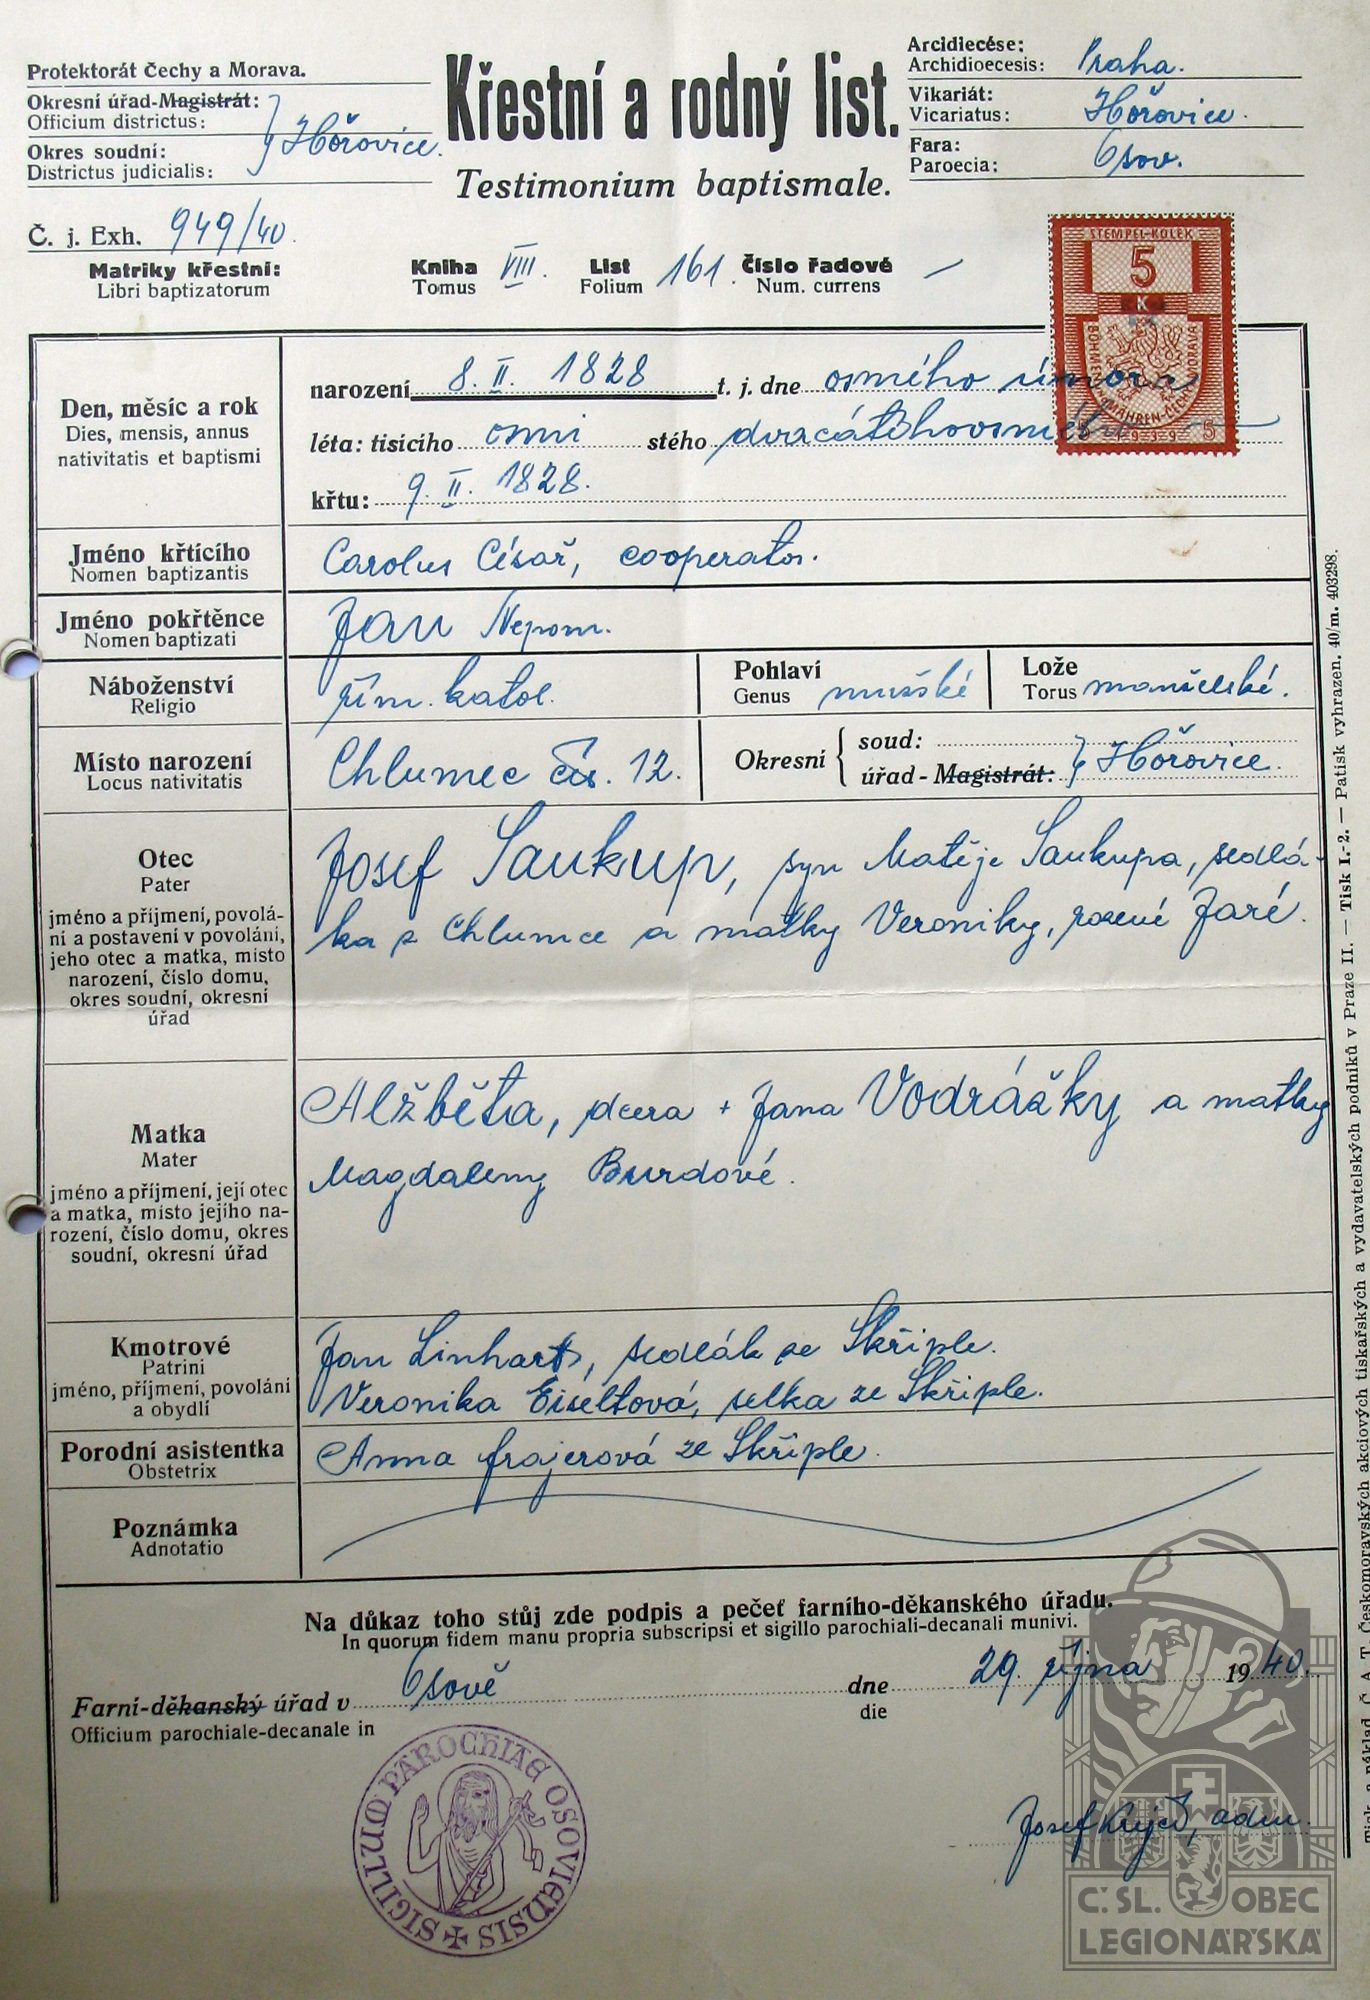 Protektorát Čechy a Morava.
Okresní úřad-Magistrát:
Officium districtus:
Okres soudní:
Districtus judicialis:
Hořovice.
Č. j. Exh. 949/40.
Křestní a rodný list.
Testimonium baptismale.
Arcidiecése:
Archidioecesis: Praha.
Vikariát:
Vicariatus: Hořovice.
Fara:
Paroecia: Osov.
Matriky křestní: Kniha VIII. List 161. Číslo řadové —
Libri baptizatorum Tomus Folium Num. currens
STEMPEL-KOLEK
5
K
BÖHMEN UND MÄHREN-ČECHY A MORAVA
1939 5
Den, měsíc a rok
Dies, mensis, annus
nativitatis et baptismi
narození 8. II. 1828 t. j. dne osmého února
léta: tisícího osmi stého dvacátéhoosmého
křtu: 9. II. 1828.
Jméno křtícího
Nomen baptizantis
Carolus Césař, cooperator.
Jméno pokřtěnce
Nomen baptizati
Jan Nepom.
Náboženství
Religio
řím. katol.
Pohlaví
Genus mužské
Lože
Torus manželské.
Místo narození
Locus nativitatis
Chlumec čís. 12.
Okresní { soud:
úřad - Magistrát: Hořovice.
Otec
Pater
jméno a příjmení, povolá-
ní a postavení v povolání,
jeho otec a matka, místo
narození, číslo domu,
okres soudní, okresní
úřad
Josef Saukup, syn Matěje Saukupa, sedlá-
ka z Chlumce a matky Veroniky, rozené Jaré.
Matka
Mater
jméno a příjmení, její otec
a matka, místo jejího na-
rození, číslo domu, okres
soudní, okresní úřad
Alžběta, dcera + Jana Vodrážky a matky
Magdaleny Burdové.
Kmotrové
Patrini
jméno, příjmení, povolání
a obydlí
Jan Linhart, sedlák ze Skřiple.
Veronika Eiseltová, selka ze Skřiple.
Porodní asistentka
Obstetrix
Anna Frajerová ze Skřiple.
Poznámka
Adnotatio
Na důkaz toho stůj zde podpis a pečeť farního-děkanského úřadu.
In quorum fidem manu propria subscripsi et sigillo parochiali-decanali munivi.
Farní-děkanský úřad v Osově dne 29. října 1940.
Officium parochiale-decanale in die
SIGILLUM PAROCHIAE OSOVIENSIS
Josef, adm.
Č. SL. OBEC
LEGIONÁŘSKÁ
Č. A. T. Českomoravských akciových tiskařských a vydavatelských podniků v Praze II. — Tisk I. 2. — Patisk vyhrazen. 40/m. 403298.